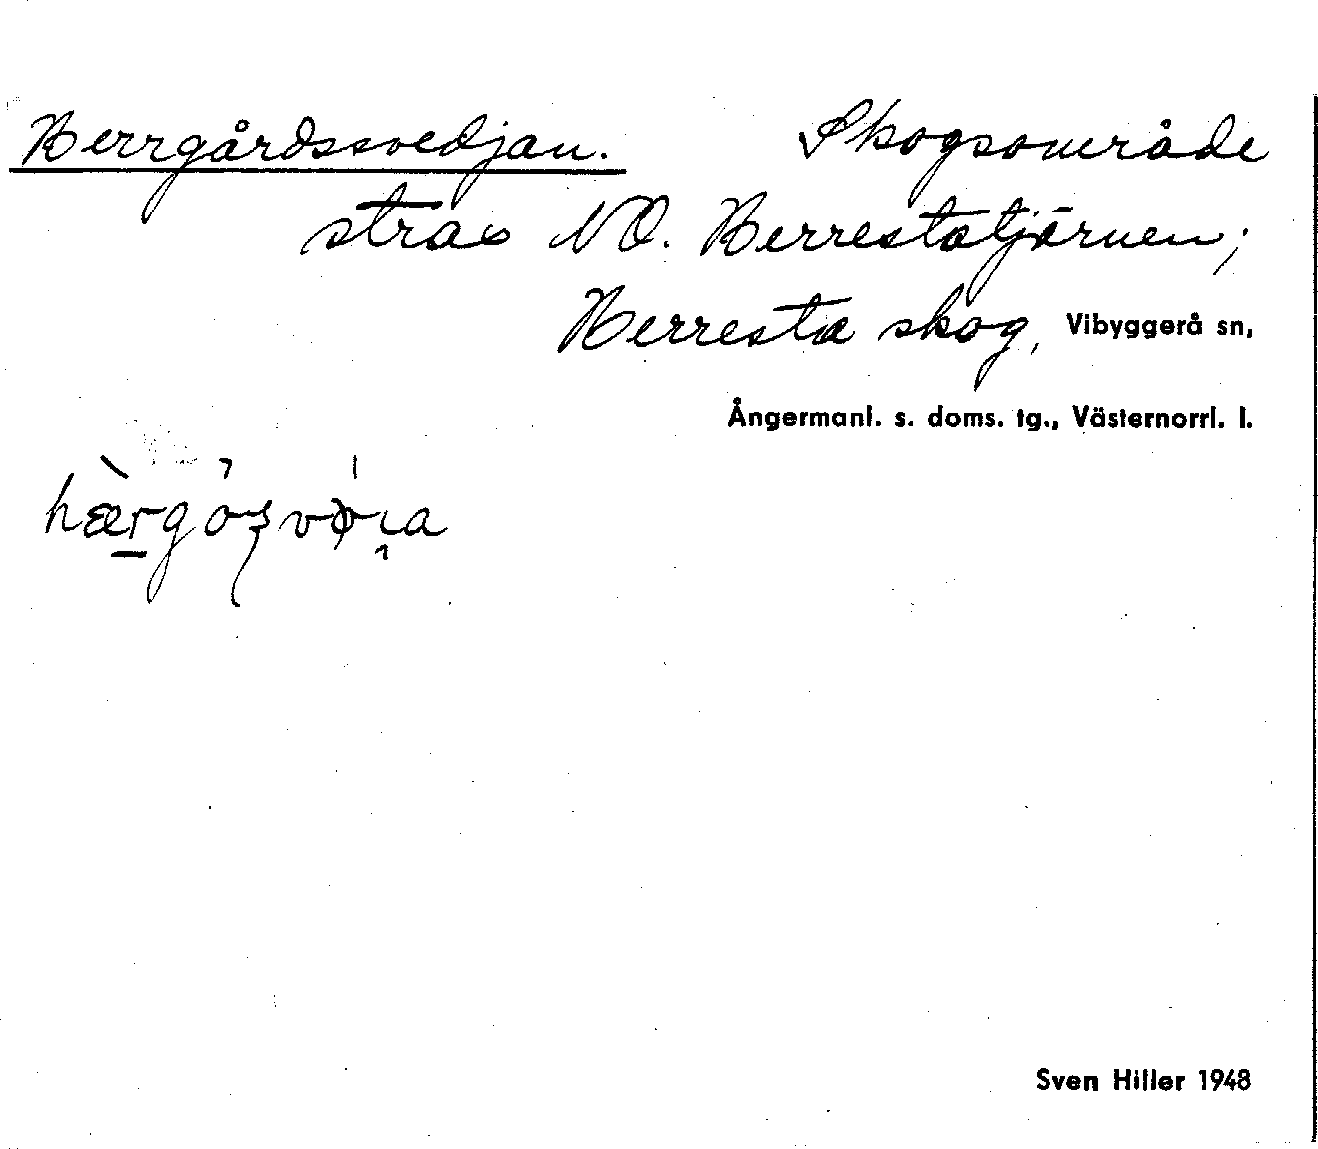 Herrgårdssvedjan. Skogsområde
strax NO. Herrestatjärnen;
Herresta skog, Vibyggerå sn,
Ångermanl. s. doms. tg., Västernorrl. l.
Sven Hiller 1948